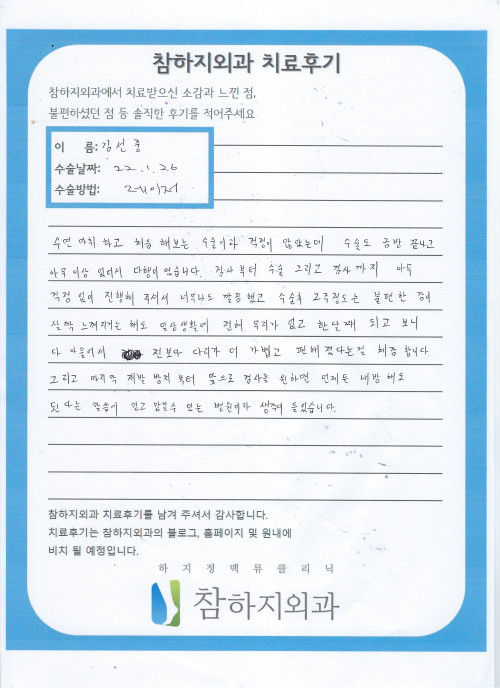 참하지외과 치료후기
참하지외과에서 치료받으신 소감과 느낀 점,
불편하셨던 점 등 솔직한 후기를 적어주세요
이 름: 김선중
수술날짜: 22. 1. 26
수술방법: 레이저
수면 마취 하고 처음 해보는 수술이라 걱정이 많았는데 수술도 금방 끝나고
아무 이상 없어서 다행이였습니다. 검사부터 수술 그리고 검사까지 아무
걱정 없이 진행해 주셔서 너무나도 깔끔했고 수술후 2주정도는 불편한 감이
살짝 느껴지기는 해도 일상생활에 전혀 무리가 없고 한달째 되고 보니
다 아물어서 전보다 다리가 더 가볍고 편해졌다는걸 체증합니다.
그리고 마지막 재발 방지부터 앞으로 검사를 원하면 언제든 내방해도
된다는 말씀이 믿고 맡길수 있는 병원이라 생각이 들었습니다.
참하지외과 치료후기를 남겨 주셔서 감사합니다.
치료후기는 참하지외과의 블로그, 홈페이지 및 원내에
비치 될 예정입니다.
하지정맥류클리닉
참하지외과